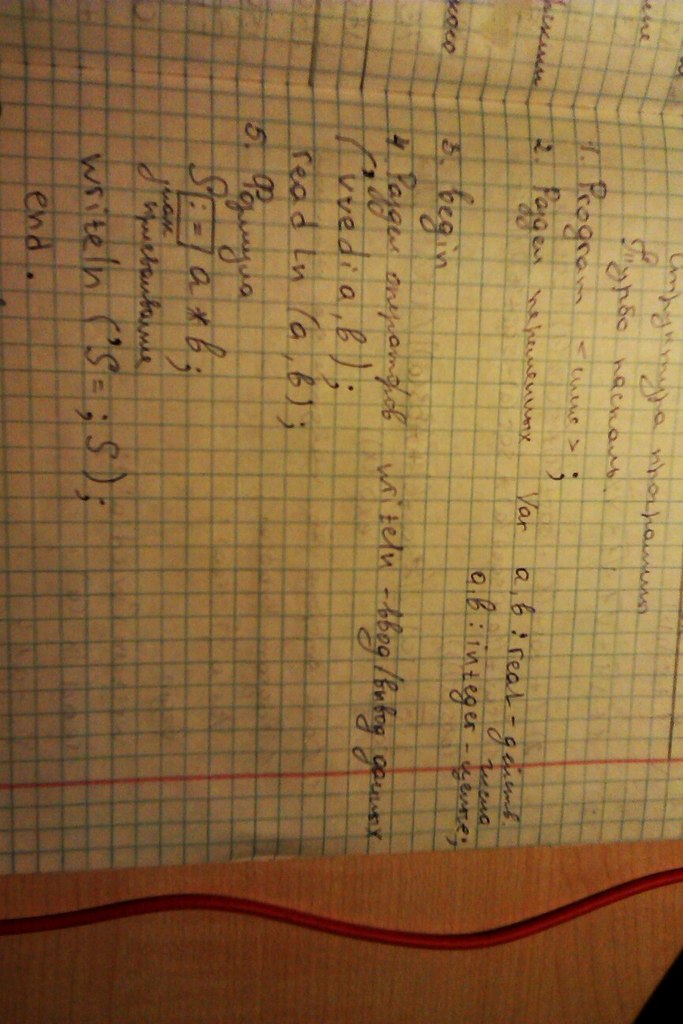 структура программы
Турбо паскаль.
1. Program <имя>;
2. Раздел переменных Var a,b : real - действ. числа
a,b : integer - целые;
3. begin
4 Раздел операторов writeln - ввод/вывод данных
(' vvedi a, b);
read ln (a, b);
5. Формула
S := a * b;
знак присваивание
writeln ('S = ; S );
end.